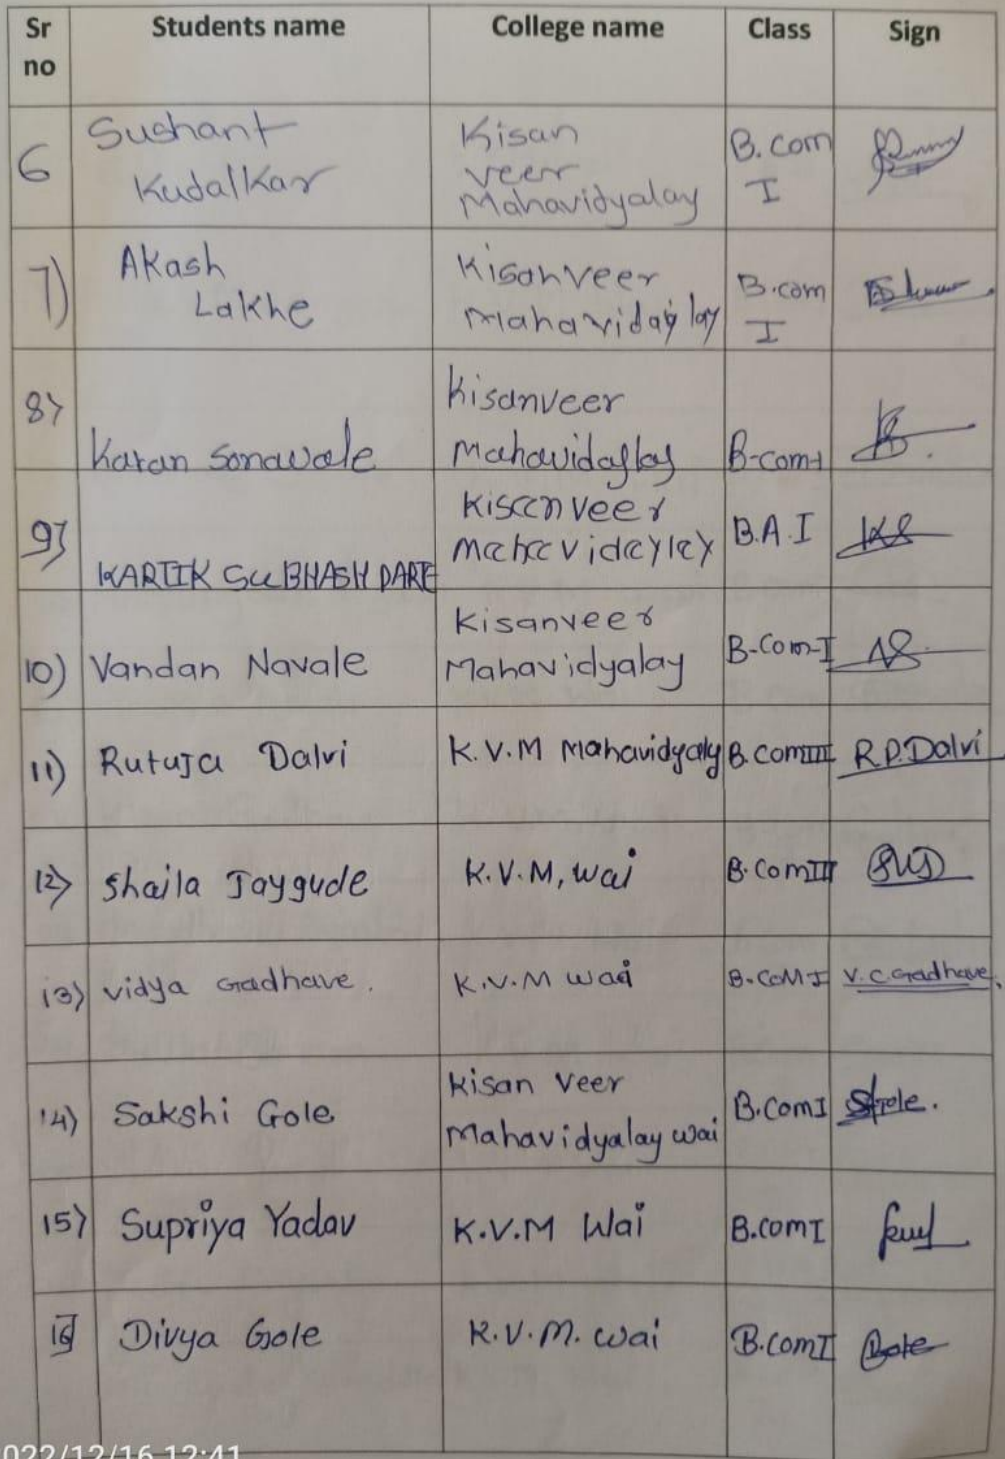 Sr no Students name College name Class Sign
6 Sushant Kudalkar Kisan veer Mahavidyalay B.com I
7) Akash Lakhe Kisanveer Mahavidaylay B.com I
8) Karan Sonawale Kisanveer Mahavidaylay B-com-I
9) KARTIK SUBHASH DARE Kisanveer Mahavidaylay B.A.I KS
10) Vandan Navale Kisanveer Mahavidyalay B-Com-I NS
11) Rutuja Dalvi K.V.M Mahavidyaly B.ComIII R.P.Dalvi
12) Shaila Jaygude K.V.M, wai B.ComIII
13) vidya Gadhave. K.V.M wai B.COM I V.C.Gadhave.
14) Sakshi Gole Kisan Veer Mahavidyalay wai B.ComI
15) Supriya Yadav K.V.M Wai B.ComI
16 Divya Gole K.V.M. wai B.ComI
022/12/16 12:41